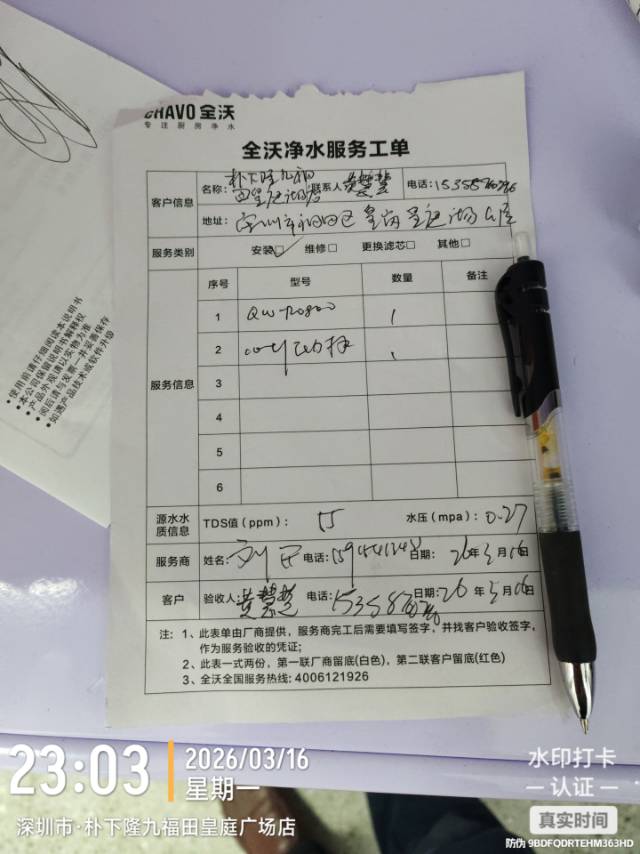 CHAVO 全沃
专注厨房净水
全沃净水服务工单
客户信息
名称: 朴下隆九福田皇庭湖店 联系人 黄慧慧 电话:
地址: 深圳市福田区皇岗皇庭
服务类别 安装☑ 维修□ 更换滤芯□ 其他□
服务信息
序号 型号 数量 备注
1 QW-RO800 1
2 1
3
4
5
6
源水水质信息 TDS值（ppm）: 55 水压（mpa）: 0.27
服务商 姓名: 电话: 日期: 26年3月16日
客户 验收人: 黄慧慧 电话: 日期: 26年3月16日
注: 1、此表单由厂商提供，服务商完工后需要填写签字，并找客户验收签字，
作为服务验收的凭证;
2、此表一式两份，第一联厂商留底(白色)，第二联客户留底(红色)
3、全沃全国服务热线: 4006121926
• 使用前请仔细阅读本说明书
• 本公司保留说明书解释权
• 产品外观请以实物为准
阅后请与发票一并妥善保存
• 如遇产品技术或软件升级
23:03
2026/03/16
星期一
深圳市·朴下隆九福田皇庭广场店
水印打卡
认证
真实时间
防伪 9BDFQDRTEHM363HD